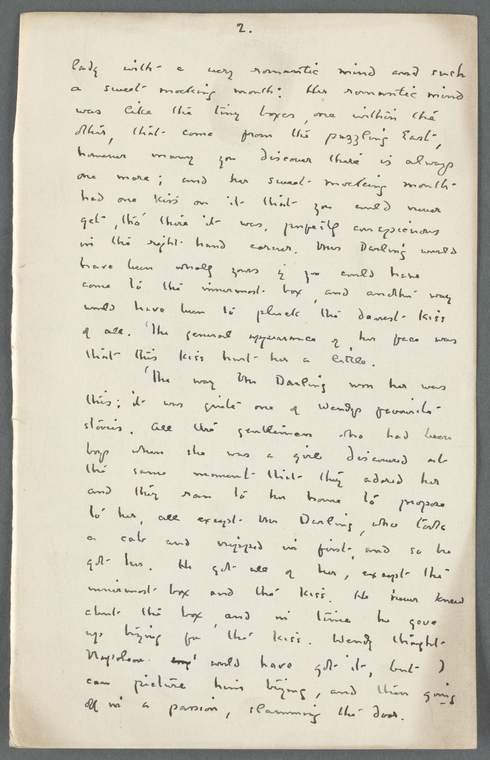 2.
lady with a very romantic mind and such
a sweet mocking mouth. Her romantic mind
was like the tiny boxes, one within the
other, that come from the puzzling East,
however many you discover there is always
one more; and her sweet mocking mouth
had one kiss on it that you could never
get, tho' there it was, perfectly conspicuous
in the right hand corner. Mrs Darling would
have been wholly yours if you could have
come to the innermost box, and another way
would have been to pluck the dearest kiss
of all. The general appearance of her face was
that this kiss hurt her a little.
The way Mr Darling won her was
this; it was quite one of Wendy's favourite
stories. All the gentlemen who had been
boys when she was a girl discovered at
the same moment that they adored her
and they ran to her home to propose
to her, all except Mr Darling, who took
a cab and nipped in first, and so he
got her. He got all of her, except the
innermost box and the kiss. He never knew
about the box, and in time he gave
up trying for the kiss. Wendy thought
Napoleon would have got it, but I
can picture him trying, and then going
off in a passion, slamming the door.